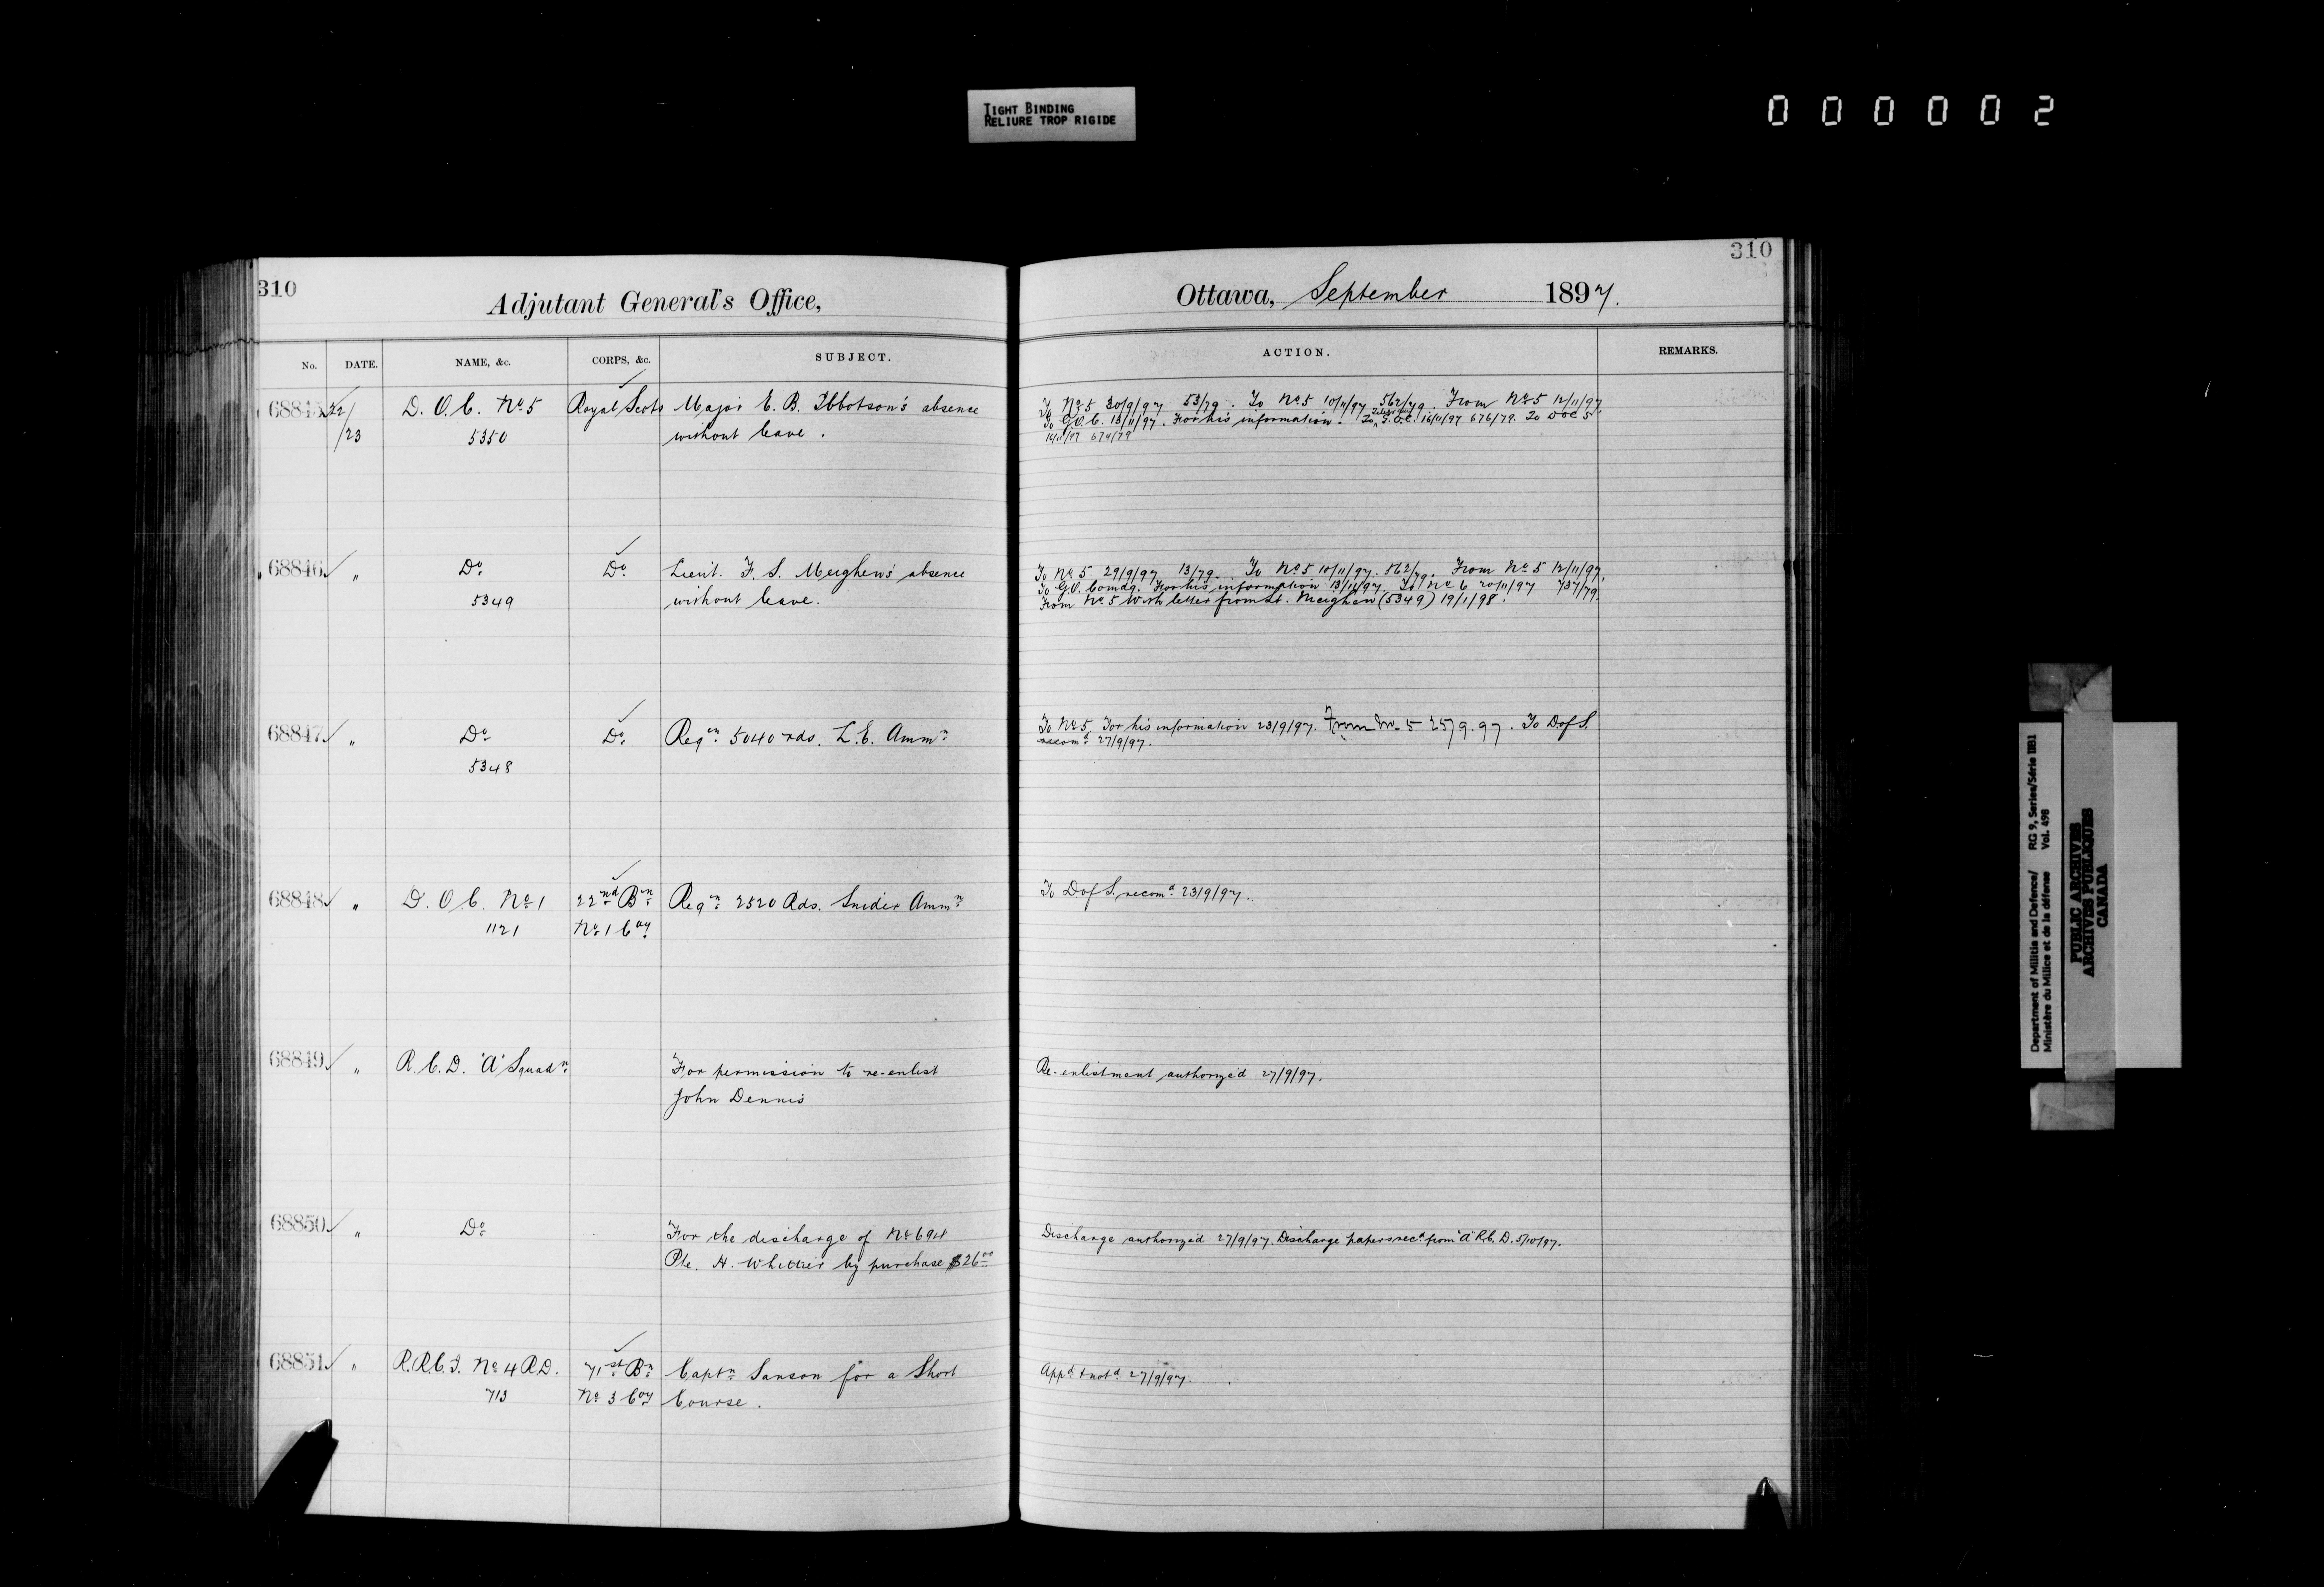 TIGHT BINDING
RELIURE TROP RIGIDE
000002
310
Adjutant General's Office,
No. DATE. NAME, &c. CORPS, &c. SUBJECT.
68845 22/ D. O. C. No 5 Royal Scots Major E. B. Ibbotson's absence
/23 5350 without leave.
68846 " Do Do Lieut. F. S. Meighen's absence
5349 without leave.
68847 " Do Do Reqn 5040 rds. L.E. Ammn
5348
68848 " D. O. C. No 1 22nd Bn Reqn 2520 Rds. Snider Ammn
1121 No 1 Coy
68849 " R. C. D. "A" Squadn For permission to re-enlist
John Dennis
68850 " Do For the discharge of No 694
Pte. H. Whittier by purchase $26.00
68851 " R.R.C.I. No 4 R.D. 71st Bn Captn Sanson for a Short
713 No 3 Coy Course.
310
Ottawa, September 1897.
ACTION. REMARKS.
To No 5 30/9/97 53/79. To No 5 10/11/97 562/79. From No 5 12/11/97.
To G.O.C. 13/11/97. For his information. To G.O.C. 16/11/97 676/79. To DOC 5
16/11/97 674/79
To No 5 29/9/97 13/79. To No 5 10/11/97. 562/79. From No 5 12/11/97.
To G.O. Comdg. For his information 13/11/97. To No 6 20/11/97 737/79.
From No 5 with letter from Lt. Meighen (5349) 19/1/98.
To No 5. For his information 23/9/97. From No. 5 25/9.97. To D of S.
recomd 27/9/97.
To D of S. recomd 23/9/97.
Re-enlistment authorized 27/9/97.
Discharge authorized 27/9/97. Discharge papers recd from "A" R.C.D. 5/10/97.
Appd & notd 27/9/97.
Department of Militia and Defence/ RG 9, Series/Série IIB1
Ministère du Milice et de la défense Vol. 498
PUBLIC ARCHIVES
ARCHIVES PUBLIQUES
CANADA